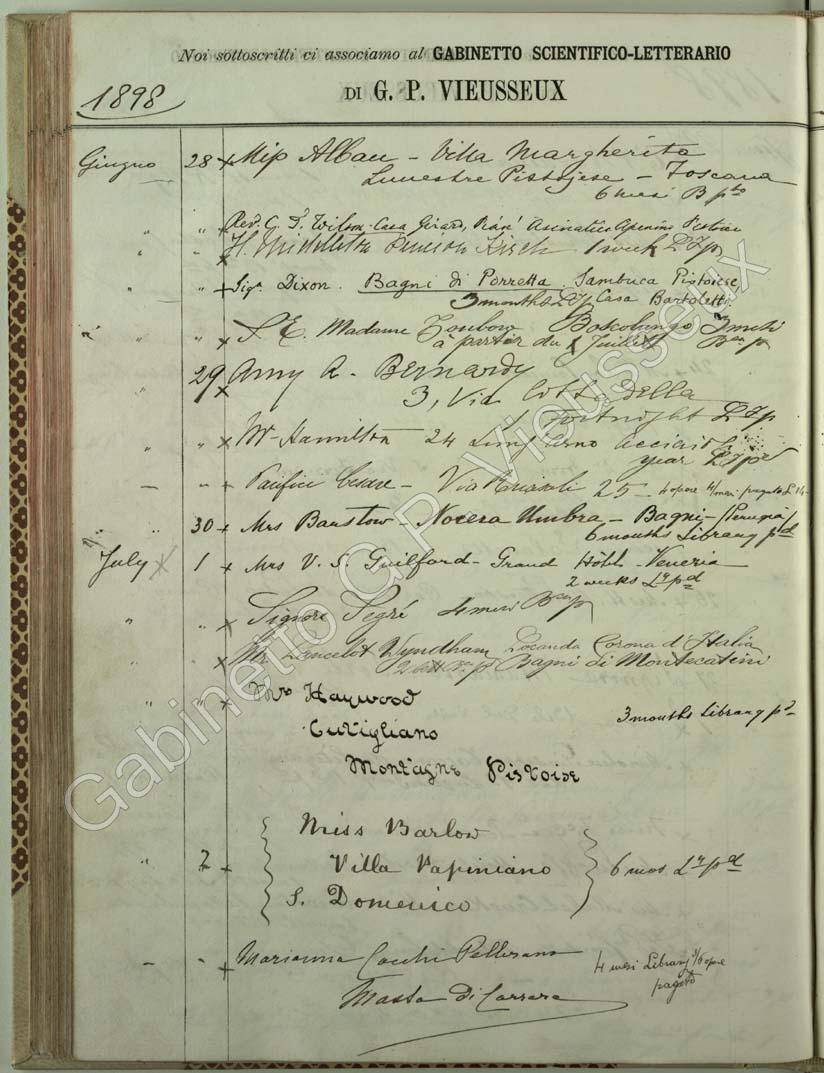 Noi sottoscritti ci associamo al GABINETTO SCIENTIFICO-LETTERARIO
DI G. P. VIEUSSEUX
1898
Giugno 28 x Miss Alban - Villa Margherita
Pistojese - Toscana
6 mesi B pto
" " x Rev. C. T. Wilson - Casa Girard, Pian Asinatico Apenino Pistoiese
" " x H. Middleton Pension 1 week
" " + Sigra Dixon. Bagni di Porretta. Sambuca Pistoiese
3 months Casa Bartoletti
" " x S. E. Madame Boscolungo 3 mesi
à partir du 1 Juillet
29 x Amy A. Bernardy
3, Via Cittadella
1 fortnight
" " x Mr Hamilton 24 Lung'Arno Acciaioli
year
- " + Pacifici Cesare - Via 25 - 4 opere 4 mesi pagato L 14-
" 30 + Mrs Banstow - Nocera Umbra - Bagni - (Perugia)
6 months Library pd
July x 1 + Mrs V. S. Guilford - Grand Hôtel - Venezia
2 weeks Ly pd
" " x Signora Segré 4 mesi
" " x Mr Lancelot Wyndham Locanda Corona d'Italia
Bagni di Montecatini
" " x Mrs Haywood
3 months Library pd
Cutigliano
Montagne Pistoise
" 2 + Miss Barlow
Villa Papiniano 6 mos Ly pd
S. Domenico
- - + Marianna Cocchi Pellerano
4 mesi Library opere
pagato
Massa di Carrara
Gabinetto G.P. Vieusseux